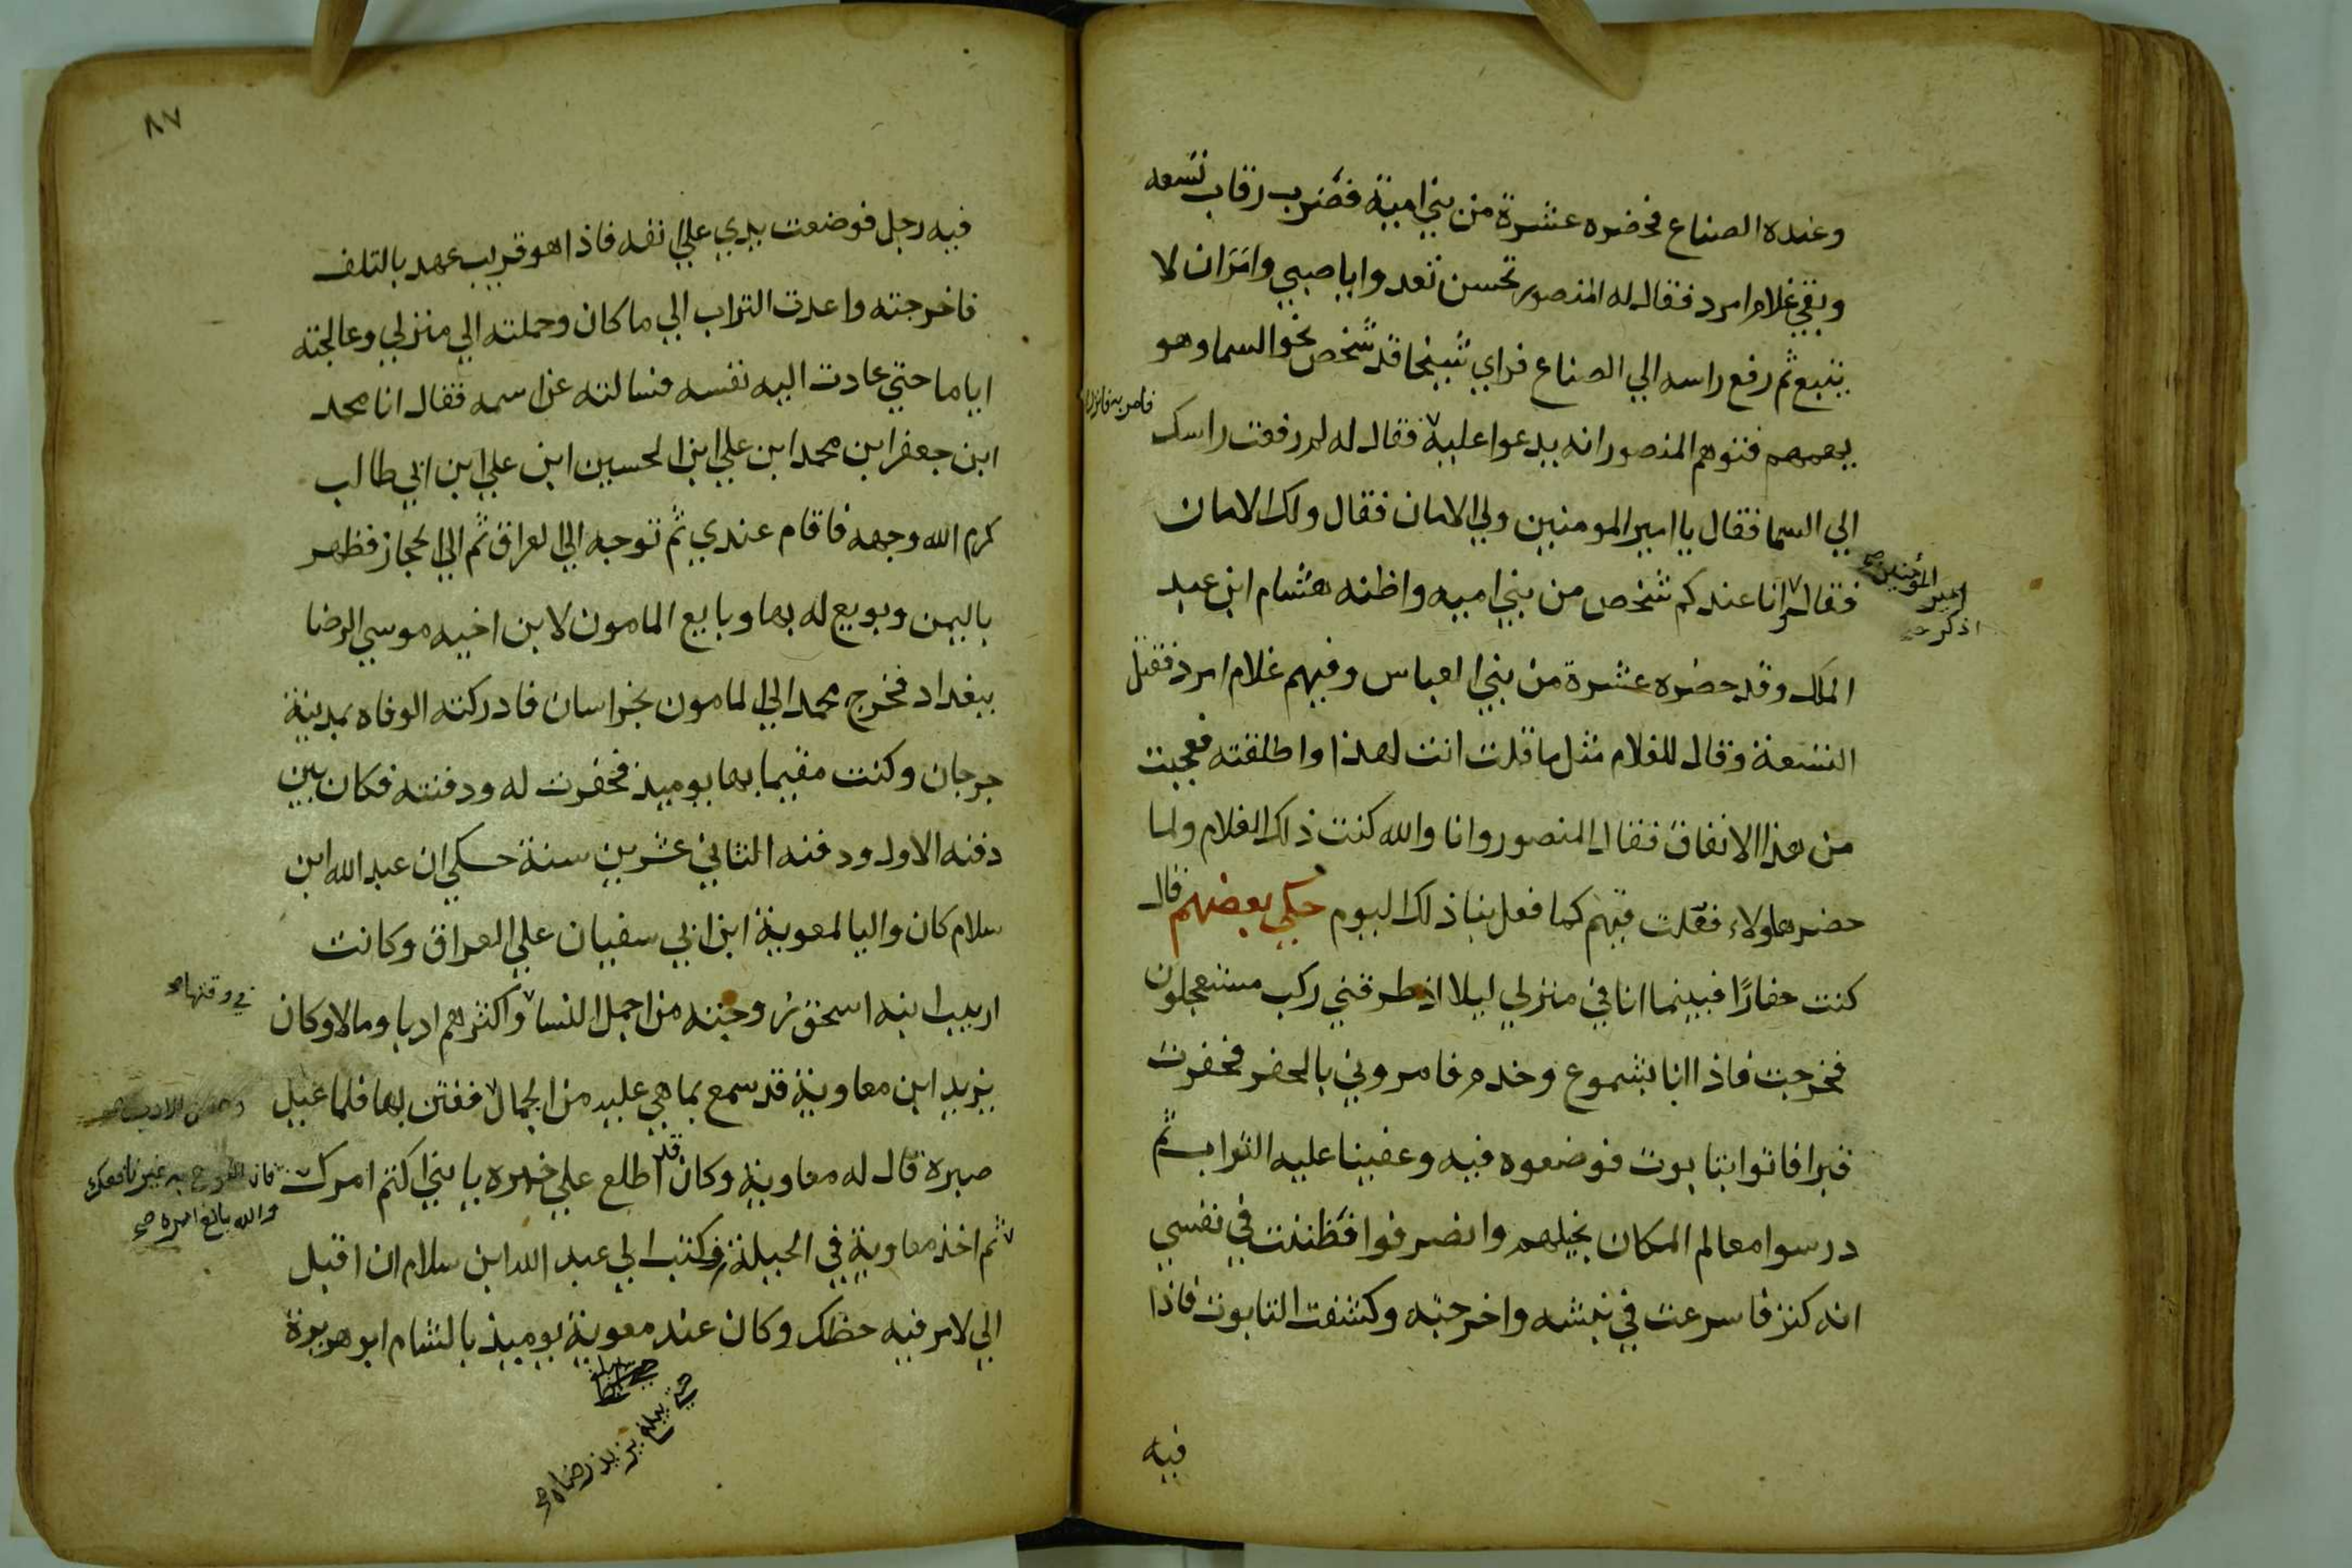 وعنده الصناع فحضره عشرة من بني امية فضرب رقاب تسعه
وبقي غلام امرد فقال له المنصور تحسن تعد وايا صبي وامر ان لا
يتبع ثم رفع راسه الي الصناع فراي شيخا قد شخص نحو السما وهو
يهمهم فتوهم المنصور انه يدعوا عليه فقال له لم رفعت راسك
فامر به فانزل
الي السما فقال يا امير المومنين ولي الامان فقال ولك الامان
فقال انا عندكم شخص من بني اميه واظنه هشام ابن عبد
امير المؤمنين صح
اذكر صح
الملك وقد حضره عشرة من بني العباس وفيهم غلام امرد فقتل
التسعة وقال للغلام مثل ما قلت انت لهذا واطلقته فعجبت
من هذا الاتفاق فقال المنصور وانا والله كنت ذلك الغلام ولما
حضر هاولاء فعلت فيهم كما فعل بنا ذلك اليوم حكي بعضهم قال
كنت حفارًا فبينما انا في منزلي ليلا اذ طرقني ركب مستعجلون
فخرجت فاذا انا بشموع وخدم فامروني بالحفر فحفرت
قبرا فاتوا بتابوت فوضعوه فيه وعفينا عليه التراب ثم
درسوا معالم المكان بخيلهم وانصرفوا فظننت في نفسي
انه كنز فاسرعت في نبشه واخرجته وكشفت التابوت فاذا
فيه
٨٧
فيه رجل فوضعت يدي علي انفه فاذا هو قريب عهد بالتلف
فاخرجته واعدت التراب الي ما كان وحملته الي منزلي وعالجته
اياما حتي عادت اليه نفسه فسالته عن اسمه فقال انا محمد
ابن جعفر ابن محمد ابن علي ابن الحسين ابن علي ابن ابي طالب
كرم الله وجهه فاقام عندي ثم توجه الي العراق ثم الي الحجاز فظهر
باليمن وبويع له بها وبايع المامون لابن اخيه موسي الرضا
ببغداد فخرج محمد الي المامون بخراسان فادركته الوفاه بمدينة
جرجان وكنت مقيما بها يوميذ فحفرت له ودفنته فكان بين
دفنه الاول ودفنه الثاني عشرين سنة حكي ان عبد الله ابن
سلام كان واليا لمعوية ابن ابي سفيان علي العراق وكانت
اريب ابنه اسحق زوجته من اجمل النسا واكثرهم ادبا ومالا وكان
في وقتها صح
يزيد ابن معاوية قد سمع بما هي عليه من الجمال ففتن بها فلما عيل
وحسن الادب صح
صبره قال له معاوية وكان قد اطلع علي خبره يا بني اكتم امرك
فان البوح به غير نافعك
والله بالغ امره صح
ثم اخذ معاوية في الحيلة وكتب الي عبد الله ابن سلام ان اقبل
الي لامر فيه حظك وكان عند معوية يوميذ بالشام ابو هريرة
حتي يبلغ يزيد رضاه صح